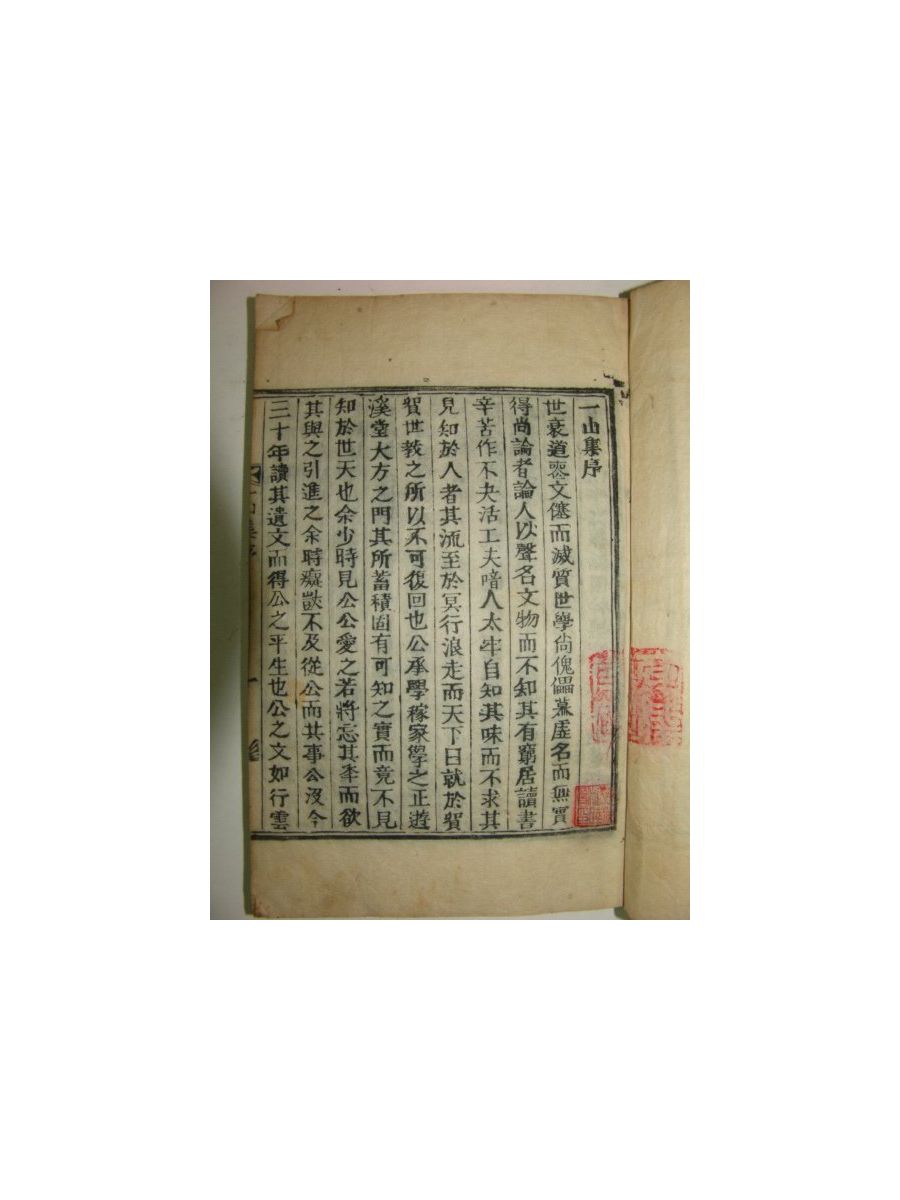 一山集序
世衰道喪文僿而滅質世學尙傀儡慕虛名而無實
得尚論者論人以聲名文物而不知其有窮居讀書
辛苦作不夬活工夫喑人太牢自知其味而不求其
見知於人者其流至於冥行浪走而天下日就於貿
貿世敎之所以不可復回也公承學稼家學之正遊
溪堂大方之門其所蓄積固有可知之實而竟不見
知於世天也余少時見公公愛之若將忘其年而欲
其與之引進之余時癡獃不及從公而其事公沒今
三十年讀其遺文而得公之平生也公之文如行雲
一山集序
一